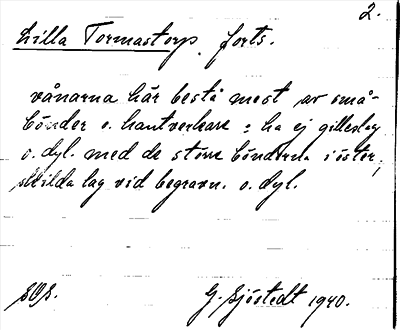 2.
Lilla Tormastorp. forts.
vånarna här bestå mest av små-
bönder o. hantverkare = ha ej gilleslag
o. dyl. med de större bönderna i öster,
skilda lag vid begravn. o. dyl.
G. Sjöstedt 1940.